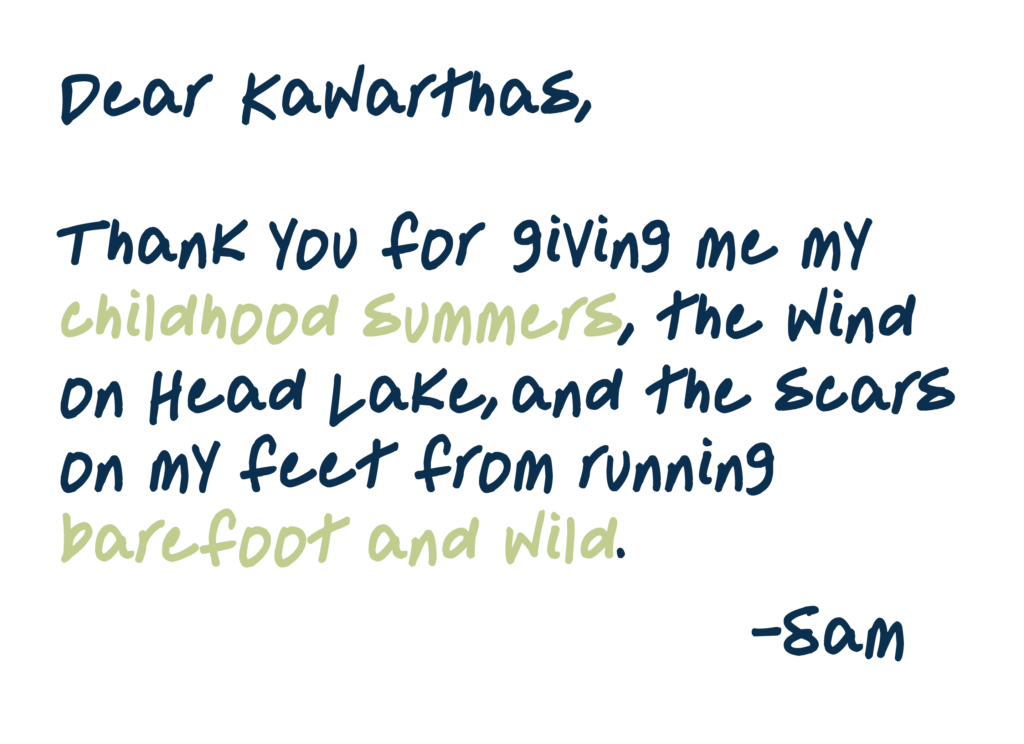 Dear Kawarthas,
Thank you for giving me my
childhood summers, the wind
on Head Lake, and the scars
on my feet from running
barefoot and wild.
-Sam